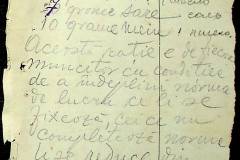 grame sare
10 grame ceai
Această rație e de fiecare
muncitor cu condiția
de a îndeplini norma
de lucru ce li se
fixează, cei ce nu
complectează norma
li se reduce din
соль